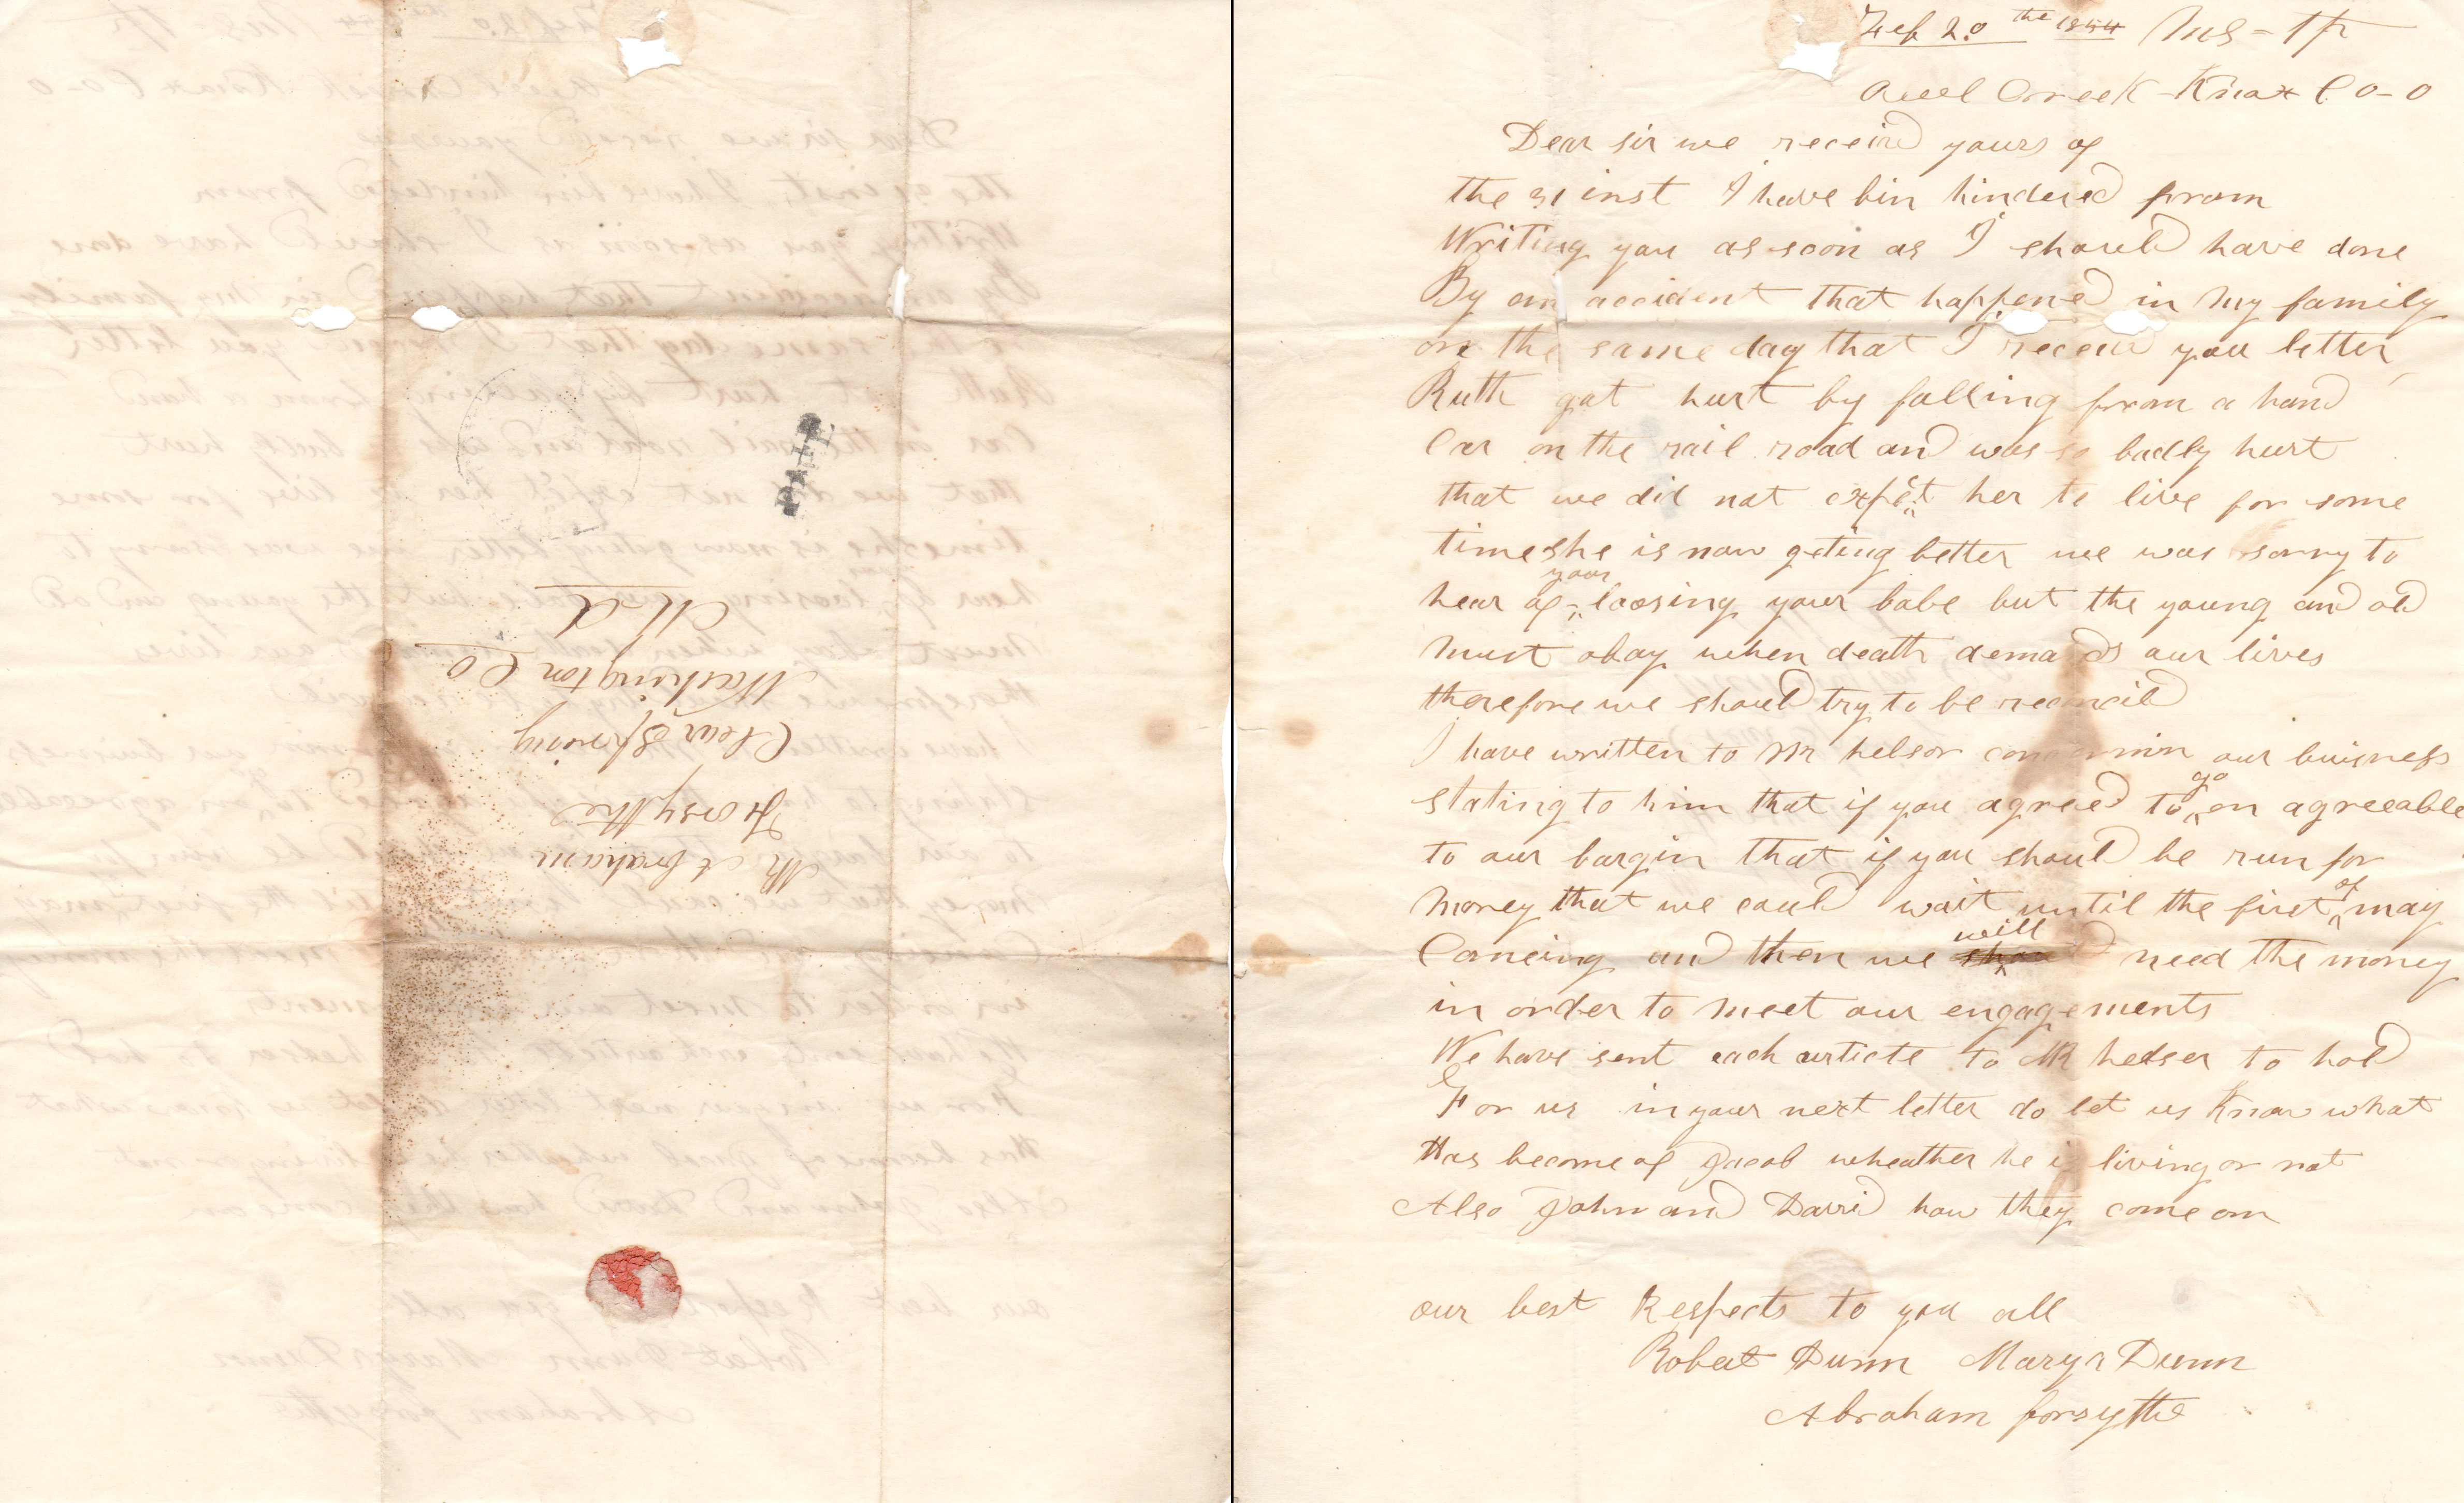 PAID
Mr Abraham
Forsythe
Clear Spring
Washington Co
Md
Feb 20 the 1854
Creek Knox Co O
Dear sir we receivd yours of
the 31 inst I have bin hindered from
Writing you as soon as I should have done
By an accident that happened in my family
on the same day that I receivd you letter
Ruth got hurt by falling from a hand
Car on the rail road and was so badly hurt
that we did not expect her to live for some
time she is now geting better we was sorry to
hear of your loosing your babe but the young and old
must obay when death demands our lives
therefore we should try to be reconcild
I have written to Mr helsor our buisness
stating to him that if you agreed to go on agreeable
to our bargin that if you should be run for
money that we could wait until the first of may
Comeing and then we will need the money
in order to meet our engagements
We have sent each article to MR helser to hold
For us in your next letter do let us Know what
Has become of Jacob wheather he is living or not
Also John and David how they come on
our best Respects to you all
Robert Dunn Mary Dunn
Abraham forsythe